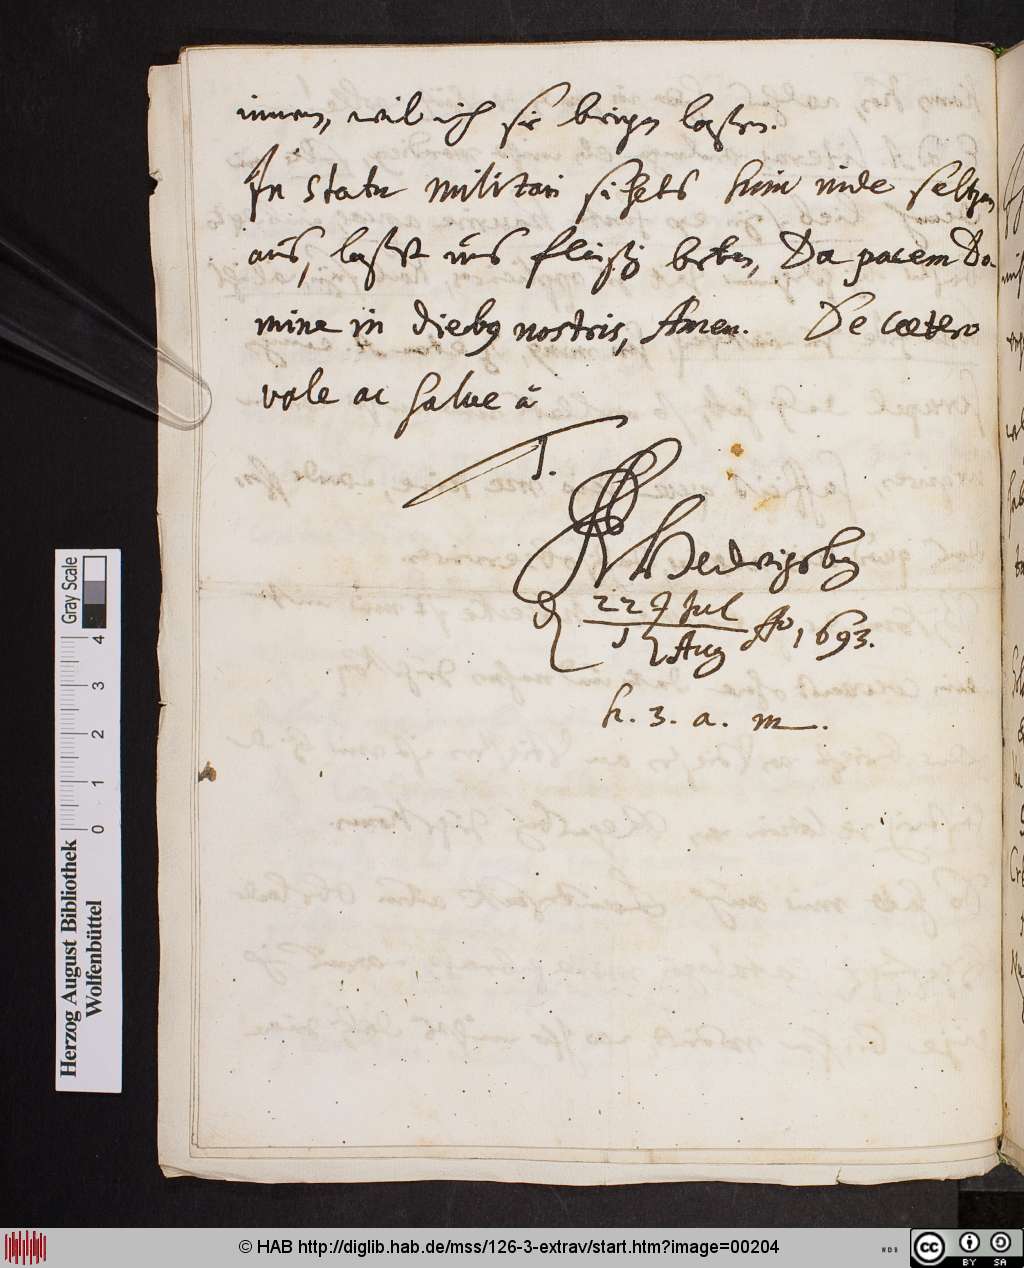 innen, wil ich sie beigen laßen.
In statu militari sihets hin unde seltzam
aus, laßet uns fleißig beten, Da pacem Do-
mine in dieb9 nostris, Amen. De cœtero
vale ac salve ā
T.
Hedwigsby
d 22 Jul
1 Aug Ao 1693.
h. 3. a. m.
Gray Scale
0 1 2 3 4
Herzog August Bibliothek
Wolfenbüttel
© HAB http://diglib.hab.de/mss/126-3-extrav/start.htm?image=00204
cc BY SA